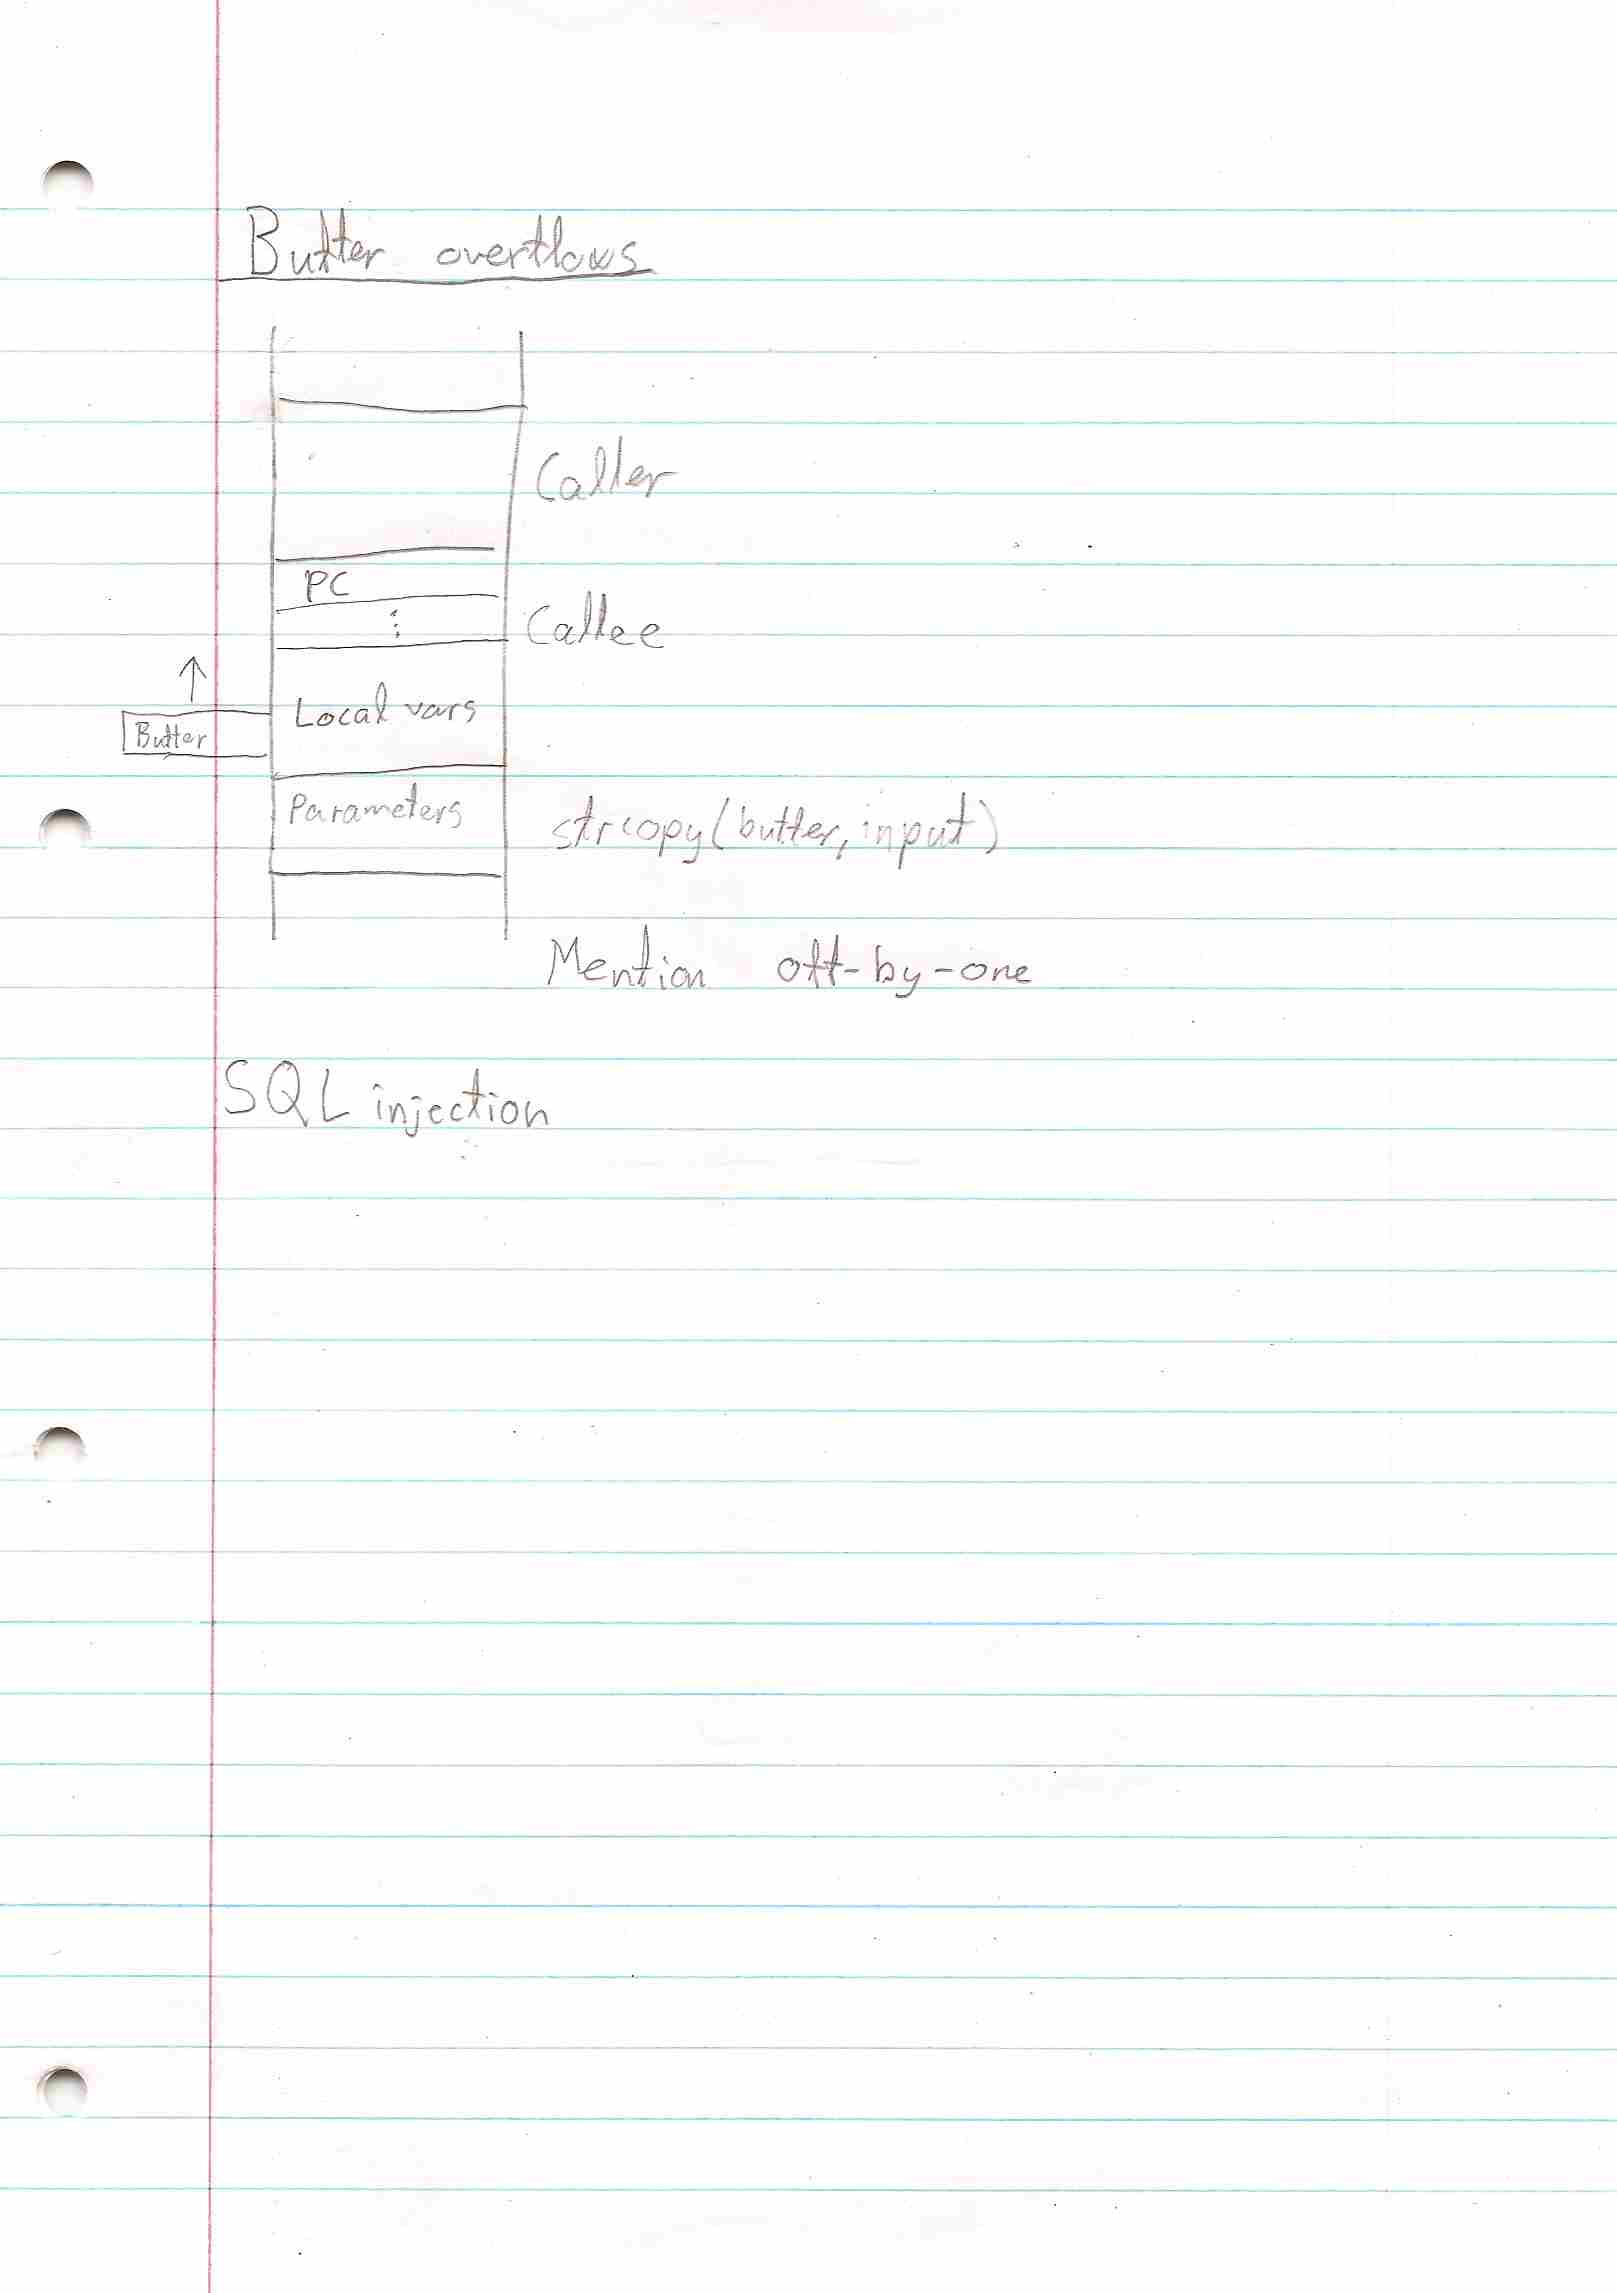 Buffer overflows
Caller
PC
⋮
Callee
Local vars
Buffer
Parameters
strcopy(buffer, input)
Mention off-by-one
SQL injection